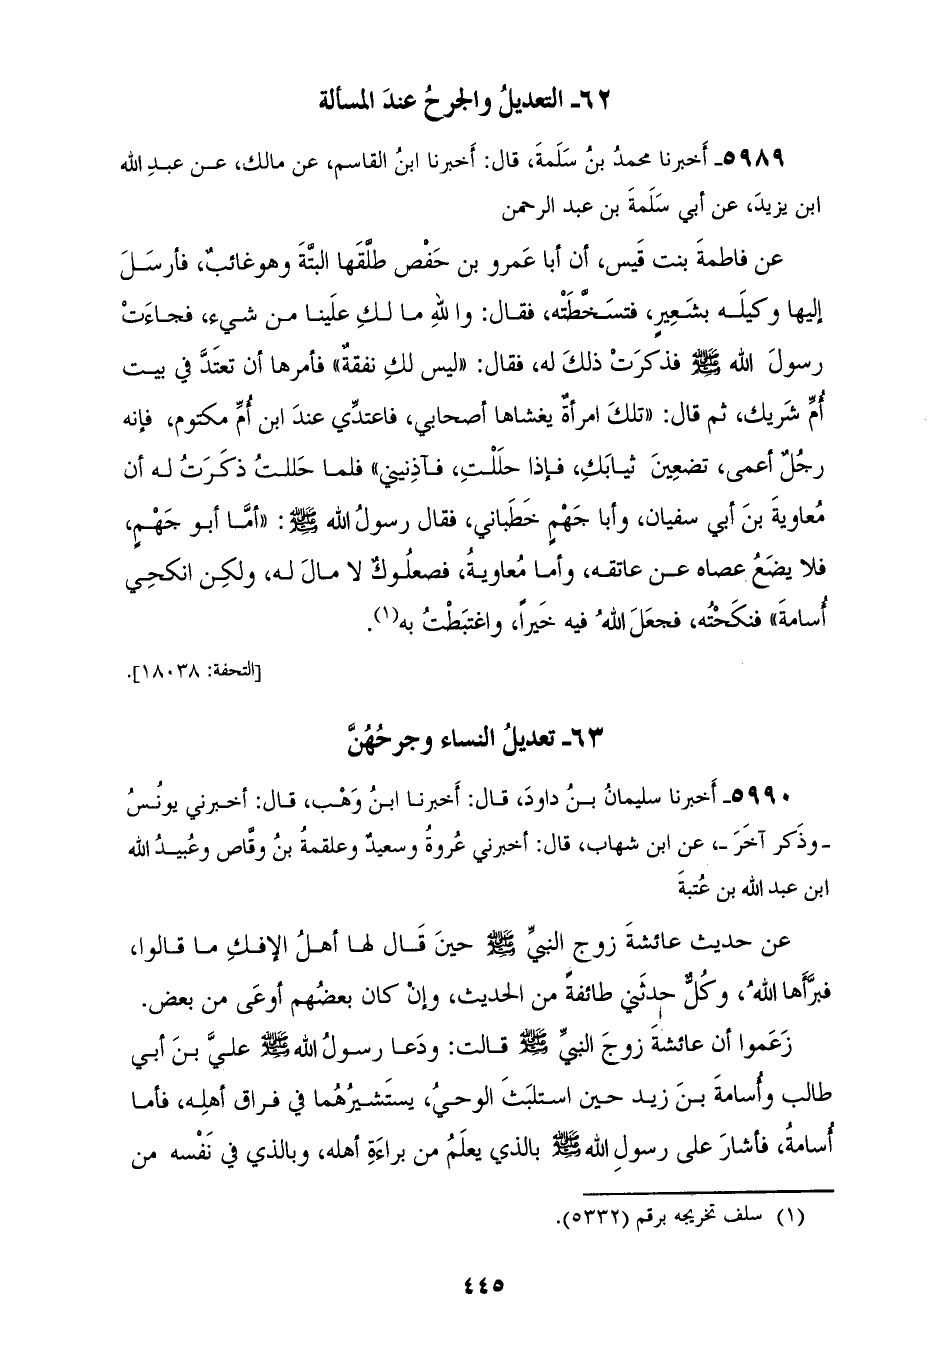 ٦٢ـ التعديلُ والجرحُ عندَ المسألة
٥٩٨٩ـ أَخبرنا محمدُ بنُ سَلَمةَ، قال: أَخبرنا ابنُ القاسم، عن مالك، عـن عبـدِ الله
ابن يزيدَ، عن أبي سَلَمةَ بن عبد الرحمن
عن فاطمةَ بنت قَيس، أن أبا عَمرو بن حَفْص طلَّقَها البتَّةَ وهوغائبٌ، فأرسَـلَ
إليها وكيلَـه بشَعيرٍ، فتسَخَّطَتْه، فقـال: واللهِ مـا لـكِ علَينـا مـن شيء، فجـاءَتْ
رسولَ الله ﷺ فذكرَتْ ذلكَ له، فقال: «ليس لكِ نفقةٌ» فأمرها أن تعتَدَّ في بيـت
أُمِّ شَريك، ثم قال: «تلكَ امرأةٌ يغشاها أصحابي، فاعتدِّي عندَ ابن أُمِّ مكتوم، فإنه
رجُلٌ أعمى، تضعِينَ ثيـابَكِ، فـإذا حلَلْتِ، فـآذِنِيني» فلمـا حَللـتُ ذكَـرَتُ لـه أن
مُعاويةَ بنَ أبي سفيان، وأبا جَهْمٍ خَطَباني، فقال رسولُ الله ﷺ : «أمَّـا أبـو جَهْـمٍ،
فلا يضَعُ عصاه عـن عاتقـه، وأمـا مُعاويـةُ، فصعلُـوكٌ لا مـالَ لـه، ولكِـن انكحِـي
أُسامةَ» فنكَحْتُه، فجعَلَ اللهُ فيه خَيراً، واغتبَطْتُ به(١).
[التحفة: ١٨٠٣٨].
٦٣ـ تعديلُ النساء وجرحُهُنَّ
٥٩٩٠ـ أَخبرنا سليمانُ بـنُ داودَ، قـال: أَخبرنـا ابـنُ وَهْـب، قـال: أخـبرني يونُـسُ
ـ وذَكر آخَرَ ـ، عن ابن شهاب، قال: أخبرني عُروةُ وسعيدٌ وعلقمةُ بنُ وقَّاص وعُبيـدُ الله
ابن عبد الله بن عُتبةَ
عن حديث عائشةَ زوج النبيِّ ﷺ حينَ قَـال لهـا أهـلُ الإفـكِ مـا قـالوا،
فبرَّأَها اللهُ، وكُلٌّ حدثَني طائفةً من الحديث، وإنْ كان بعضُهم أوعَى من بعض.
زَعَموا أن عائشةَ زوجَ النبيِّ ﷺ قـالت: ودَعـا رسـولُ الله ﷺ علـيَّ بـنَ أبـي
طالب وأُسامةَ بـنَ زيـد حـين اسـتلبَثَ الوحـيُ، يستَشيرُهُما في فـراق أهلِـه، فأمـا
أُسامةُ، فأشارَ على رسولِ الله ﷺ بالذي يعلَمُ من براءَةِ أهله، وبالذي في نَفْسه من
(١) سلف تخريجه برقم (٥٣٣٢).
٤٤٥